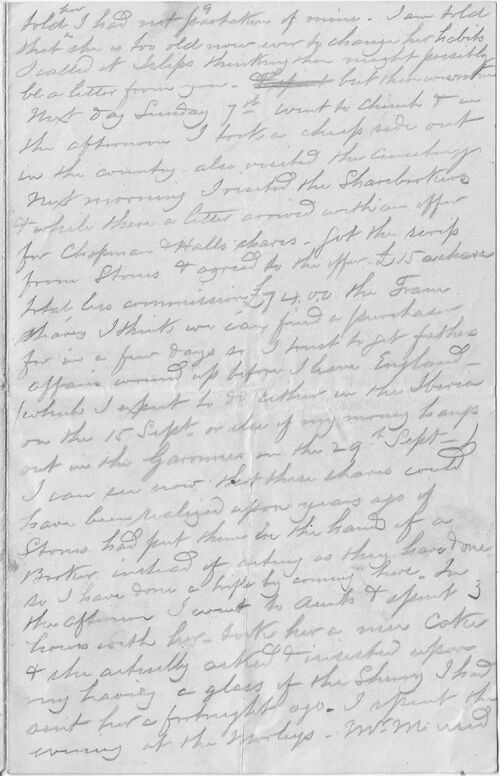 told her I had not partaken of mine - I am told
that she is too old now ever to change her habits
I called at Islips thinking there might possibly
be a letter from you - but there wasn't
Next day Sunday 7th went to church & in
the afternoon I took a cheap ride out
in the country - also visited the Cemetery
Next morning I visited the Sharebrokers
& while there a letter arrived with an offer
for Chapman & Halls shares - got the scrip
from Stones & agreed to the offer - £15 a share
total less commission £74.0.0 the Tram
shares I think we can find a purchaser
for in a few days so I trust to get fathers
affairs wound up before I leave England -
(which I expect to do either in the Iberia
on the 15 Sept. or else if my money hangs
out in the Garonne on the 29th Sept -)
I can see now that these shares could
have been realized upon years ago if
Stones had put them in the hand of a
Broker instead of acting as they have done
so I have done a bit by coming here - In
the afternoon I went to Aunts & spent 3
hours with her - took her a nice Cake
& she actually asked & insisted upon
my having a glass of the Sherry I had
sent her a fortnight ago - I spent the
evening at the Morleys - Mr. M. and